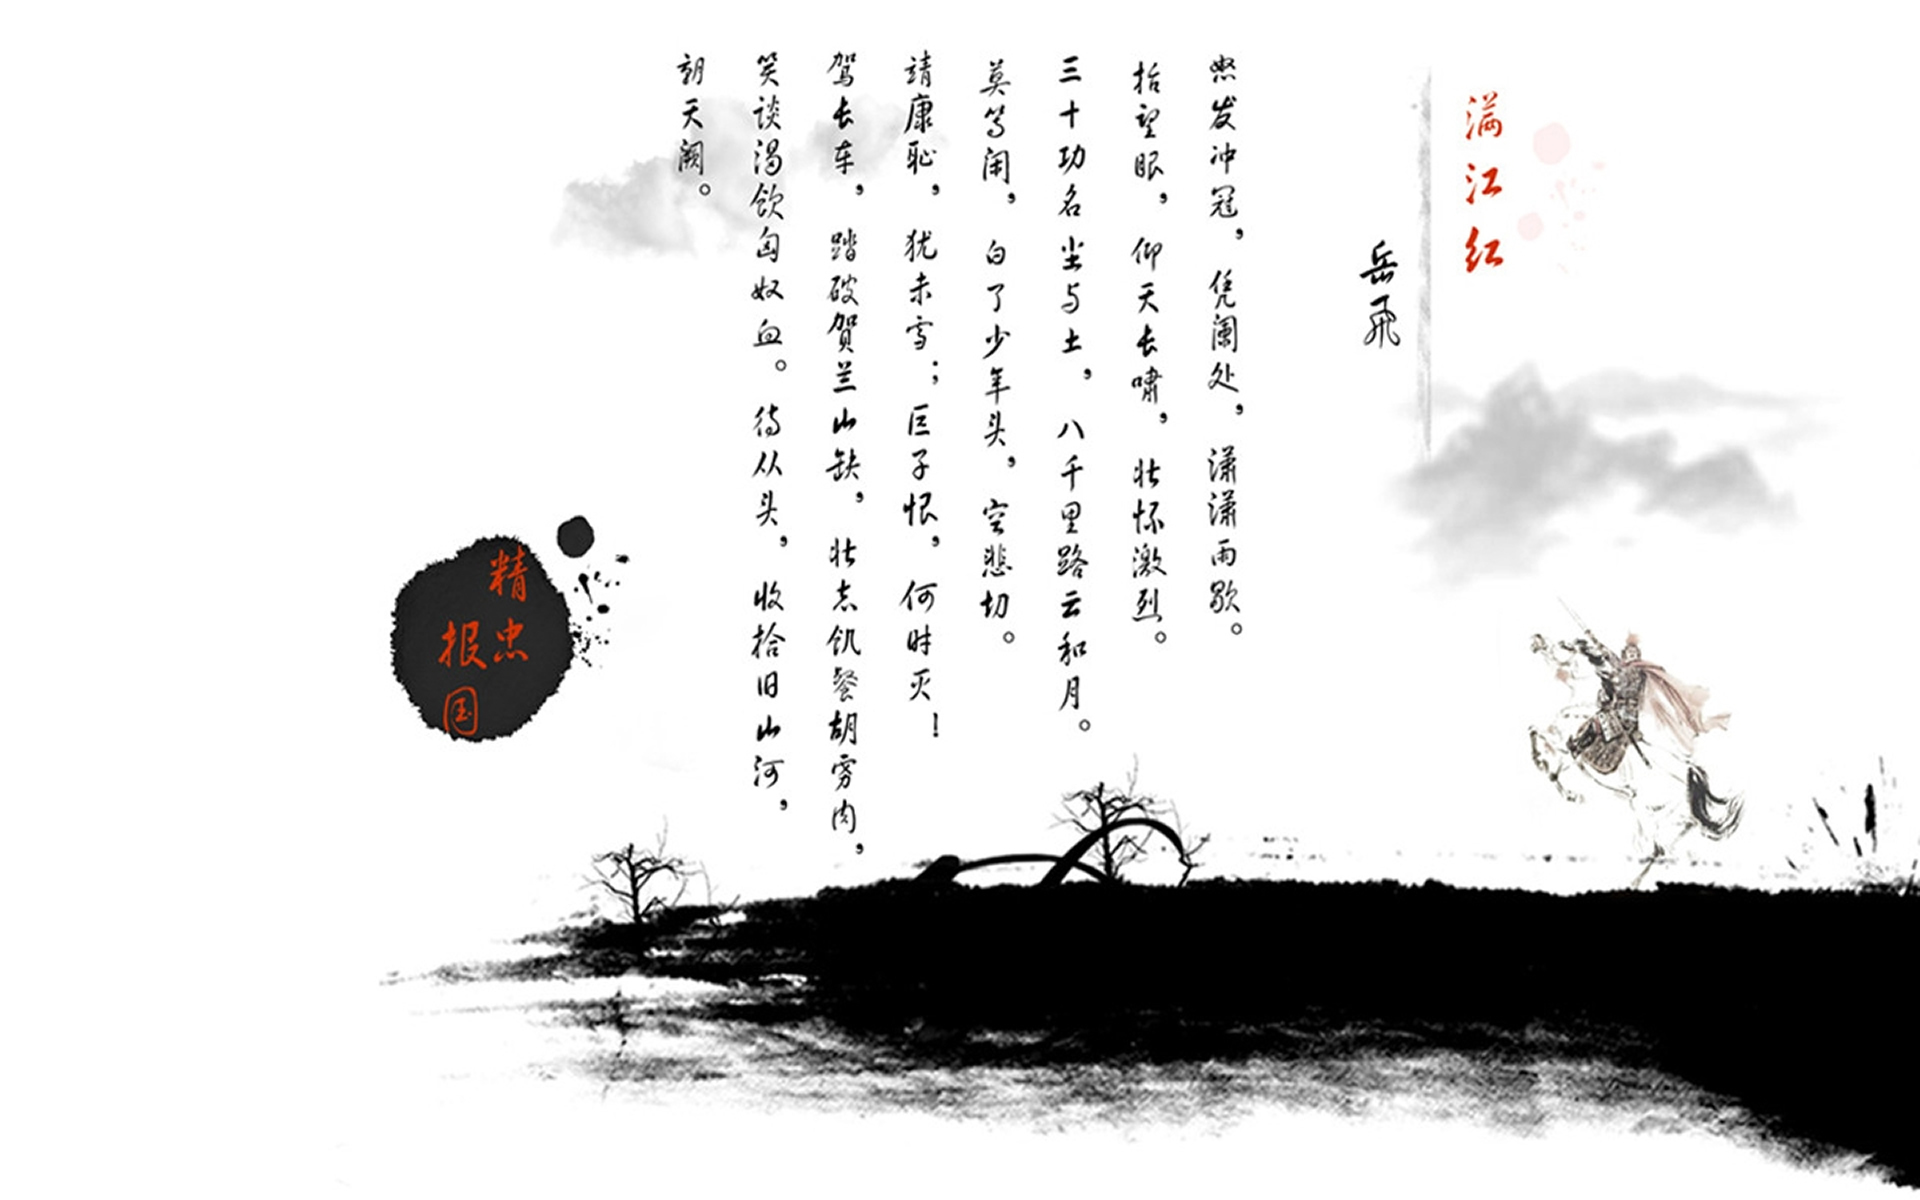 满江红
岳飛
怒发冲冠，凭阑处，潇潇雨歇。
抬望眼，仰天长啸，壮怀激烈。
三十功名尘与土，八千里路云和月。
莫等闲，白了少年头，空悲切。
靖康耻，犹未雪；巨子恨，何时灭！
驾长车，踏破贺兰山缺，壮志饥餐胡虏肉，
笑谈渴饮匈奴血。待从头，收拾旧山河，
朝天阙。
精忠
报国